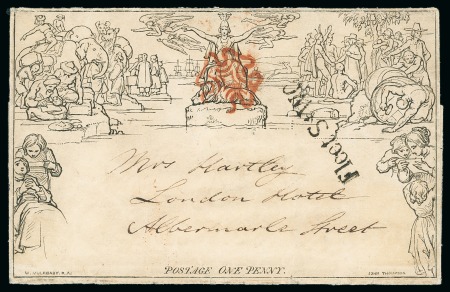 Fleet St
Mrs Hartley
London Hotel
Albermarle Street
W. MULREADY. R.A.
POSTAGE ONE PENNY.
JOHN THOMPSON